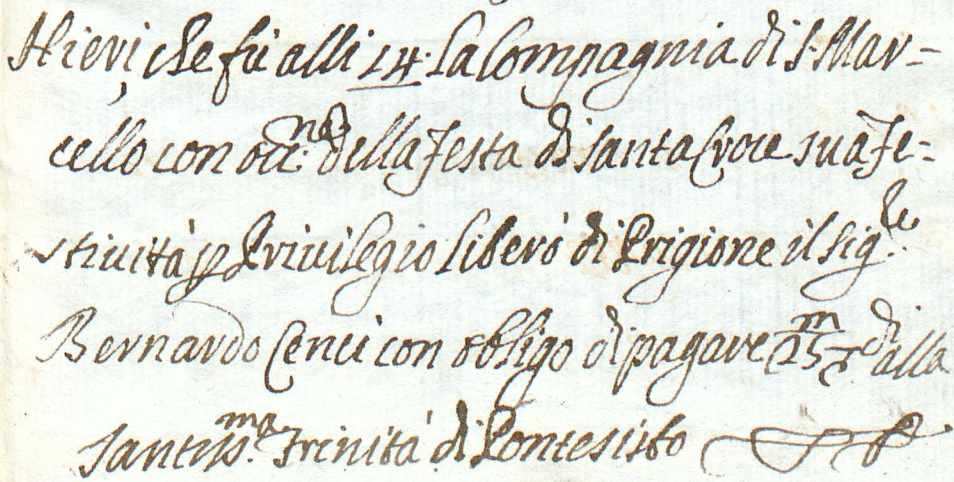 Hieri, che fù alli 14. la Compagnia di S. Mar-
cello con occ.ne della festa di santa Croce sua fe-
stiuità p Priuilegio liberò di Prigione il Sig.re
Bernardo Cenci con obligo di pagare 25 m di alla
santiss.ma Trinità di Pontesisto